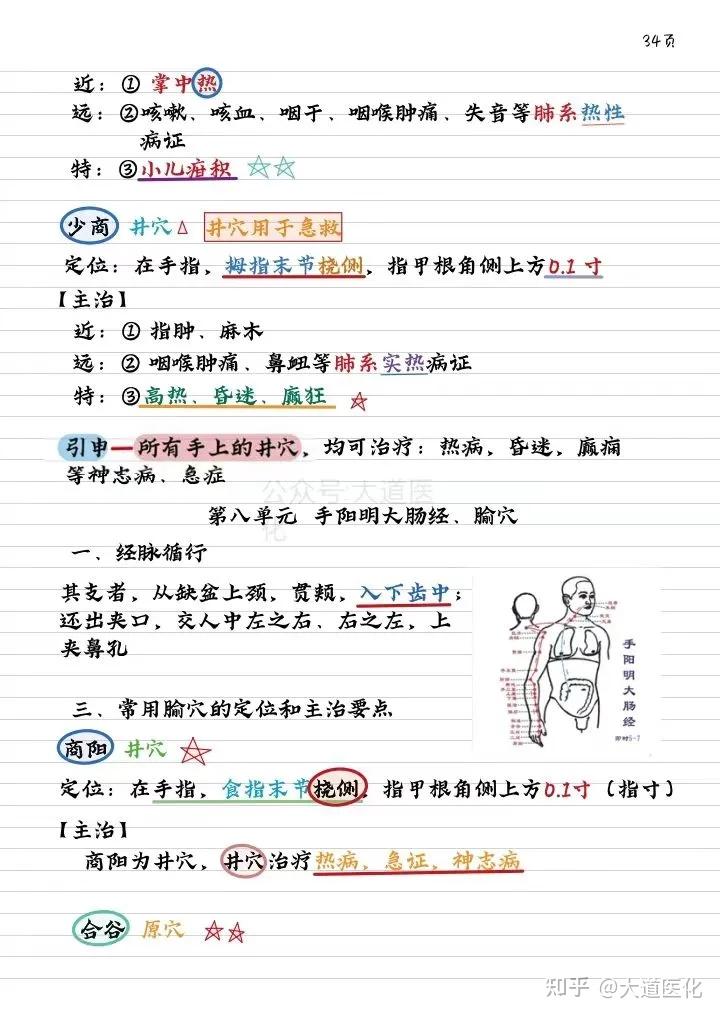 34页
近：① 掌中热
远：②咳嗽、咳血、咽干、咽喉肿痛、失音等肺系热性
病证
特：③小儿疳积 ☆☆
少商 井穴△ 井穴用于急救
定位：在手指，拇指末节桡侧，指甲根角侧上方0.1寸
【主治】
近：① 指肿、麻木
远：② 咽喉肿痛、鼻衄等肺系实热病证
特：③高热、昏迷、癫狂 ☆
引申—所有手上的井穴，均可治疗：热病，昏迷，癫痫
等神志病、急症
公众号·大道医化
第八单元 手阳明大肠经、腧穴
一、经脉循行
其支者，从缺盆上颈，贯颊，入下齿中；
还出夹口，交人中左之右、右之左，上
夹鼻孔
手阳明大肠经
三、常用腧穴的定位和主治要点
商阳 井穴 ☆
定位：在手指，食指末节桡侧，指甲根角侧上方0.1寸（指寸）
【主治】
商阳为井穴，井穴治疗热病，急证，神志病
合谷 原穴 ☆☆
知乎 @大道医化